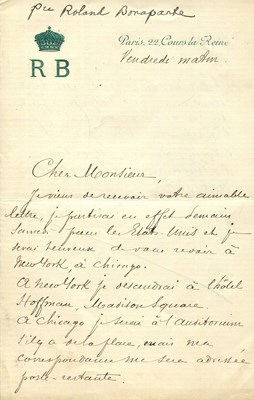 Pce Roland Bonaparte
R B
Paris, 22, Cours la Reine
Vendredi matin
Cher Monsieur,
Je viens de recevoir votre aimable
lettre, je partirai en effet demain
samedi pour les Etats-Unis et je
serai heureux de vous revoir à
New York, à Chicago.
A New York je descendrai à l'hôtel
Hoffman, Madison Square.
à Chicago je serai à l'Auditorium
s'il y a de la place, mais ma
correspondance me sera adressée
poste-restante.